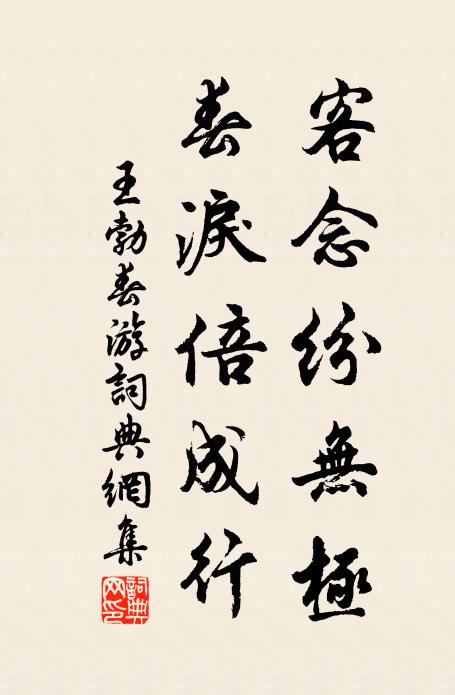 客念紛無極
春淚倍成行
王勃春游詞典網集
詞典
網印